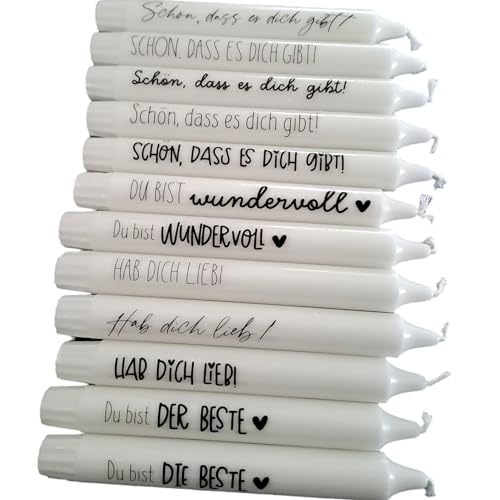 Schön, dass es dich gibt!
SCHÖN, DASS ES DICH GIBT!
Schön, dass es dich gibt!
Schön, dass es dich gibt!
SCHÖN, DASS ES DICH GIBT!
DU BIST wundervoll ♥
Du bist WUNDERVOLL ♥
HAB DICH LIEB!
Hab dich lieb!
HAB DICH LIEB!
Du bist DER BESTE ♥
Du bist DIE BESTE ♥